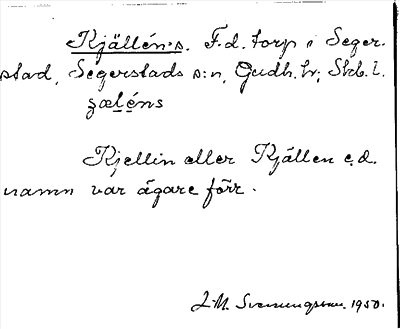 Kjällén's. F.d. torp i Seger-
stad, Segerstads s:n, Gudh. hr; Skb. l.
zæléns
Kjellin eller Kjällen e.d.
namn var ägare förr.
J.M. Svenungsson. 1950.